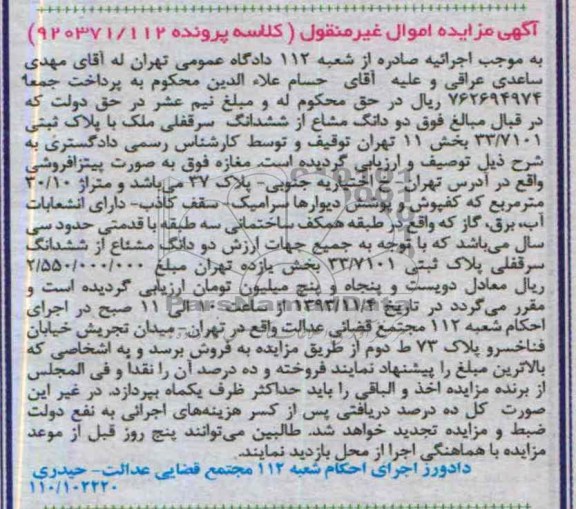 آگهی مزایده اموال غیرمنقول ( کلاسه پرونده ۹۲۰۳۷۱/۱۱۲)
به موجب اجرائیه صادره از شعبه ۱۱۲ دادگاه عمومی تهران له آقای مهدی
ساعدی عراقی و علیه آقای حسام علاء الدین محکوم به پرداخت جمعا
۷۶۲۶۹۴۹۷۴ ریال در حق محکوم له و مبلغ نیم عشر در حق دولت که
در قبال مبالغ فوق دو دانگ مشاع از ششدانگ سرقفلی ملک با پلاک ثبتی
۳۳/۷۱۰۱ بخش ۱۱ تهران توقیف و توسط کارشناس رسمی دادگستری به
شرح ذیل توصیف و ارزیابی گردیده است. مغازه فوق به صورت پیتزافروشی
واقع در آدرس تهران- اختیاریه جنوبی- پلاک ۳۷ می‌باشد و متراژ ۳۰/۱۰
مترمربع که کفپوش و پوشش دیوارها سرامیک- سقف کاذب- دارای انشعابات
آب، برق، گاز که واقع در طبقه همکف ساختمانی سه طبقه با قدمتی حدود سی
سال می‌باشد که با توجه به جمیع جهات ارزش دو دانگ مشاع از ششدانگ
سرقفلی پلاک ثبتی ۳۳/۷۱۰۱ بخش یازده تهران مبلغ ۲/۵۵۰/۰۰۰/۰۰۰
ریال معادل دویست و پنجاه و پنج میلیون تومان ارزیابی گردیده است و
مقرر می‌گردد در تاریخ ۱۳۹۳/۱۱/۴ از ساعت ۱۰ الی ۱۱ صبح در اجرای
احکام شعبه ۱۱۲ مجتمع قضائی عدالت واقع در تهران- میدان تجریش خیابان
فناخسرو پلاک ۷۳ ط دوم از طریق مزایده به فروش برسد و به اشخاصی که
بالاترین مبلغ را پیشنهاد نمایند فروخته و ده درصد آن را نقدا و فی المجلس
از برنده مزایده اخذ و الباقی را باید حداکثر ظرف یکماه بپردازد. در غیر این
صورت کل ده درصد دریافتی پس از کسر هزینه‌های اجرائی به نفع دولت
ضبط و مزایده تجدید خواهد شد. طالبین می‌توانند پنج روز قبل از موعد
مزایده با هماهنگی اجرا از محل بازدید نمایند.
دادورز اجرای احکام شعبه ۱۱۲ مجتمع قضایی عدالت- حیدری
۱۱۰/۱۰۲۲۲۰